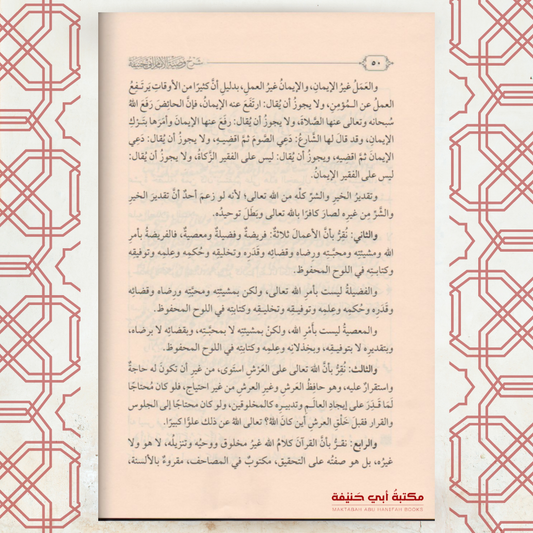 ٥٠
شرح وصية الإمام أبي حنيفة
والعَمَلُ غيرُ الإيمانِ، والإيمانُ غيرُ العملِ، بدليلِ أنَّ كثيرًا من الأوقاتِ يَرتَفِعُ
العملُ عن المُؤمِنِ، ولا يجوزُ أن يُقال: ارتَفَعَ عنه الإيمانُ، فإنَّ الحائِضَ رَفَعَ اللهُ
سُبحانه وتعالى عنها الصَّلاةَ، ولا يجوزُ أن يُقال: رفَعَ عنها الإيمانَ وأمَرَها بتَركِ
الإيمانِ، وقد قالَ لها الشَّارِعُ: دَعِي الصَّومَ ثمَّ اقضِيهِ، ولا يجوزُ أن يُقال: دَعِي
الإيمانَ ثمَّ اقضِيهِ، ويجوزُ أن يُقال: ليس على الفقيرِ الزَّكاةُ، ولا يجوزُ أن يُقال:
ليس على الفقيرِ الإيمانُ.
وتقديرُ الخيرِ والشرِّ كلِّه من الله تعالى؛ لأنه لو زعمَ أحدٌ أنَّ تقديرَ الخيرِ
والشَّرِّ مِن غيرِه لصارَ كافرًا بالله تعالى وبَطَلَ توحيدُه.
والثاني: نُقِرُّ بأنَّ الأعمالَ ثلاثةٌ: فريضةٌ وفضيلةٌ ومعصيةٌ، فالفريضةُ بأمرِ
الله ومشيئتِه ومحبَّتِه ورِضاه وقضائِه وقَدَرِه وتخليقِه وحُكمِه وعِلمِه وتوفيقِه
وكتابتِه في اللوحِ المحفوظ.
والفضيلةُ ليست بأمرِ الله تعالى، ولكن بمشيئتِه ومحبَّتِه ورِضاه وقضائِه
وقَدَرِه وحُكمِه وعِلمِه وتوفيقِه وتخليقِه وكتابتِه في اللوح المحفوظ.
والمعصيةُ ليست بأمرِ الله، ولكنْ بمشيئتِه لا بمحبَّتِه، وبقضائِه لا برِضاه،
وبتقديرِه لا بتوفيقِه، وبخِذلانِه وعِلمِه وكتابتِه في اللوحِ المحفوظ.
والثالث: نُقرُّ بأنَّ اللهَ تعالى على العَرْشِ استَوى، من غيرِ أن تكونَ له حاجةٌ
واستقرارٌ عليه، وهو حافِظُ العَرشِ وغيرِ العرشِ من غيرِ احتياجٍ، فلو كان مُحتاجًا
لَمَا قَدَرَ على إيجادِ العالَمِ وتدبيرِه كالمخلوقين، ولو كان محتاجًا إلى الجلوسِ
والقرارِ فقبلَ خَلْقِ العرشِ أين كانَ اللهُ؟ تعالى اللهُ عن ذلك علوًّا كبيرًا.
والرابع: نقرُّ بأنَّ القرآنَ كلامُ اللهِ غيرُ مخلوقٍ ووحيُه وتنزيلُه، لا هو ولا
غيرُه، بل هو صفتُه على التحقيق، مكتوبٌ في المصاحف، مقروءٌ بالألسنة،
مكتبة أبي حَنيفة
MAKTABAH ABU HANIFAH BOOKS